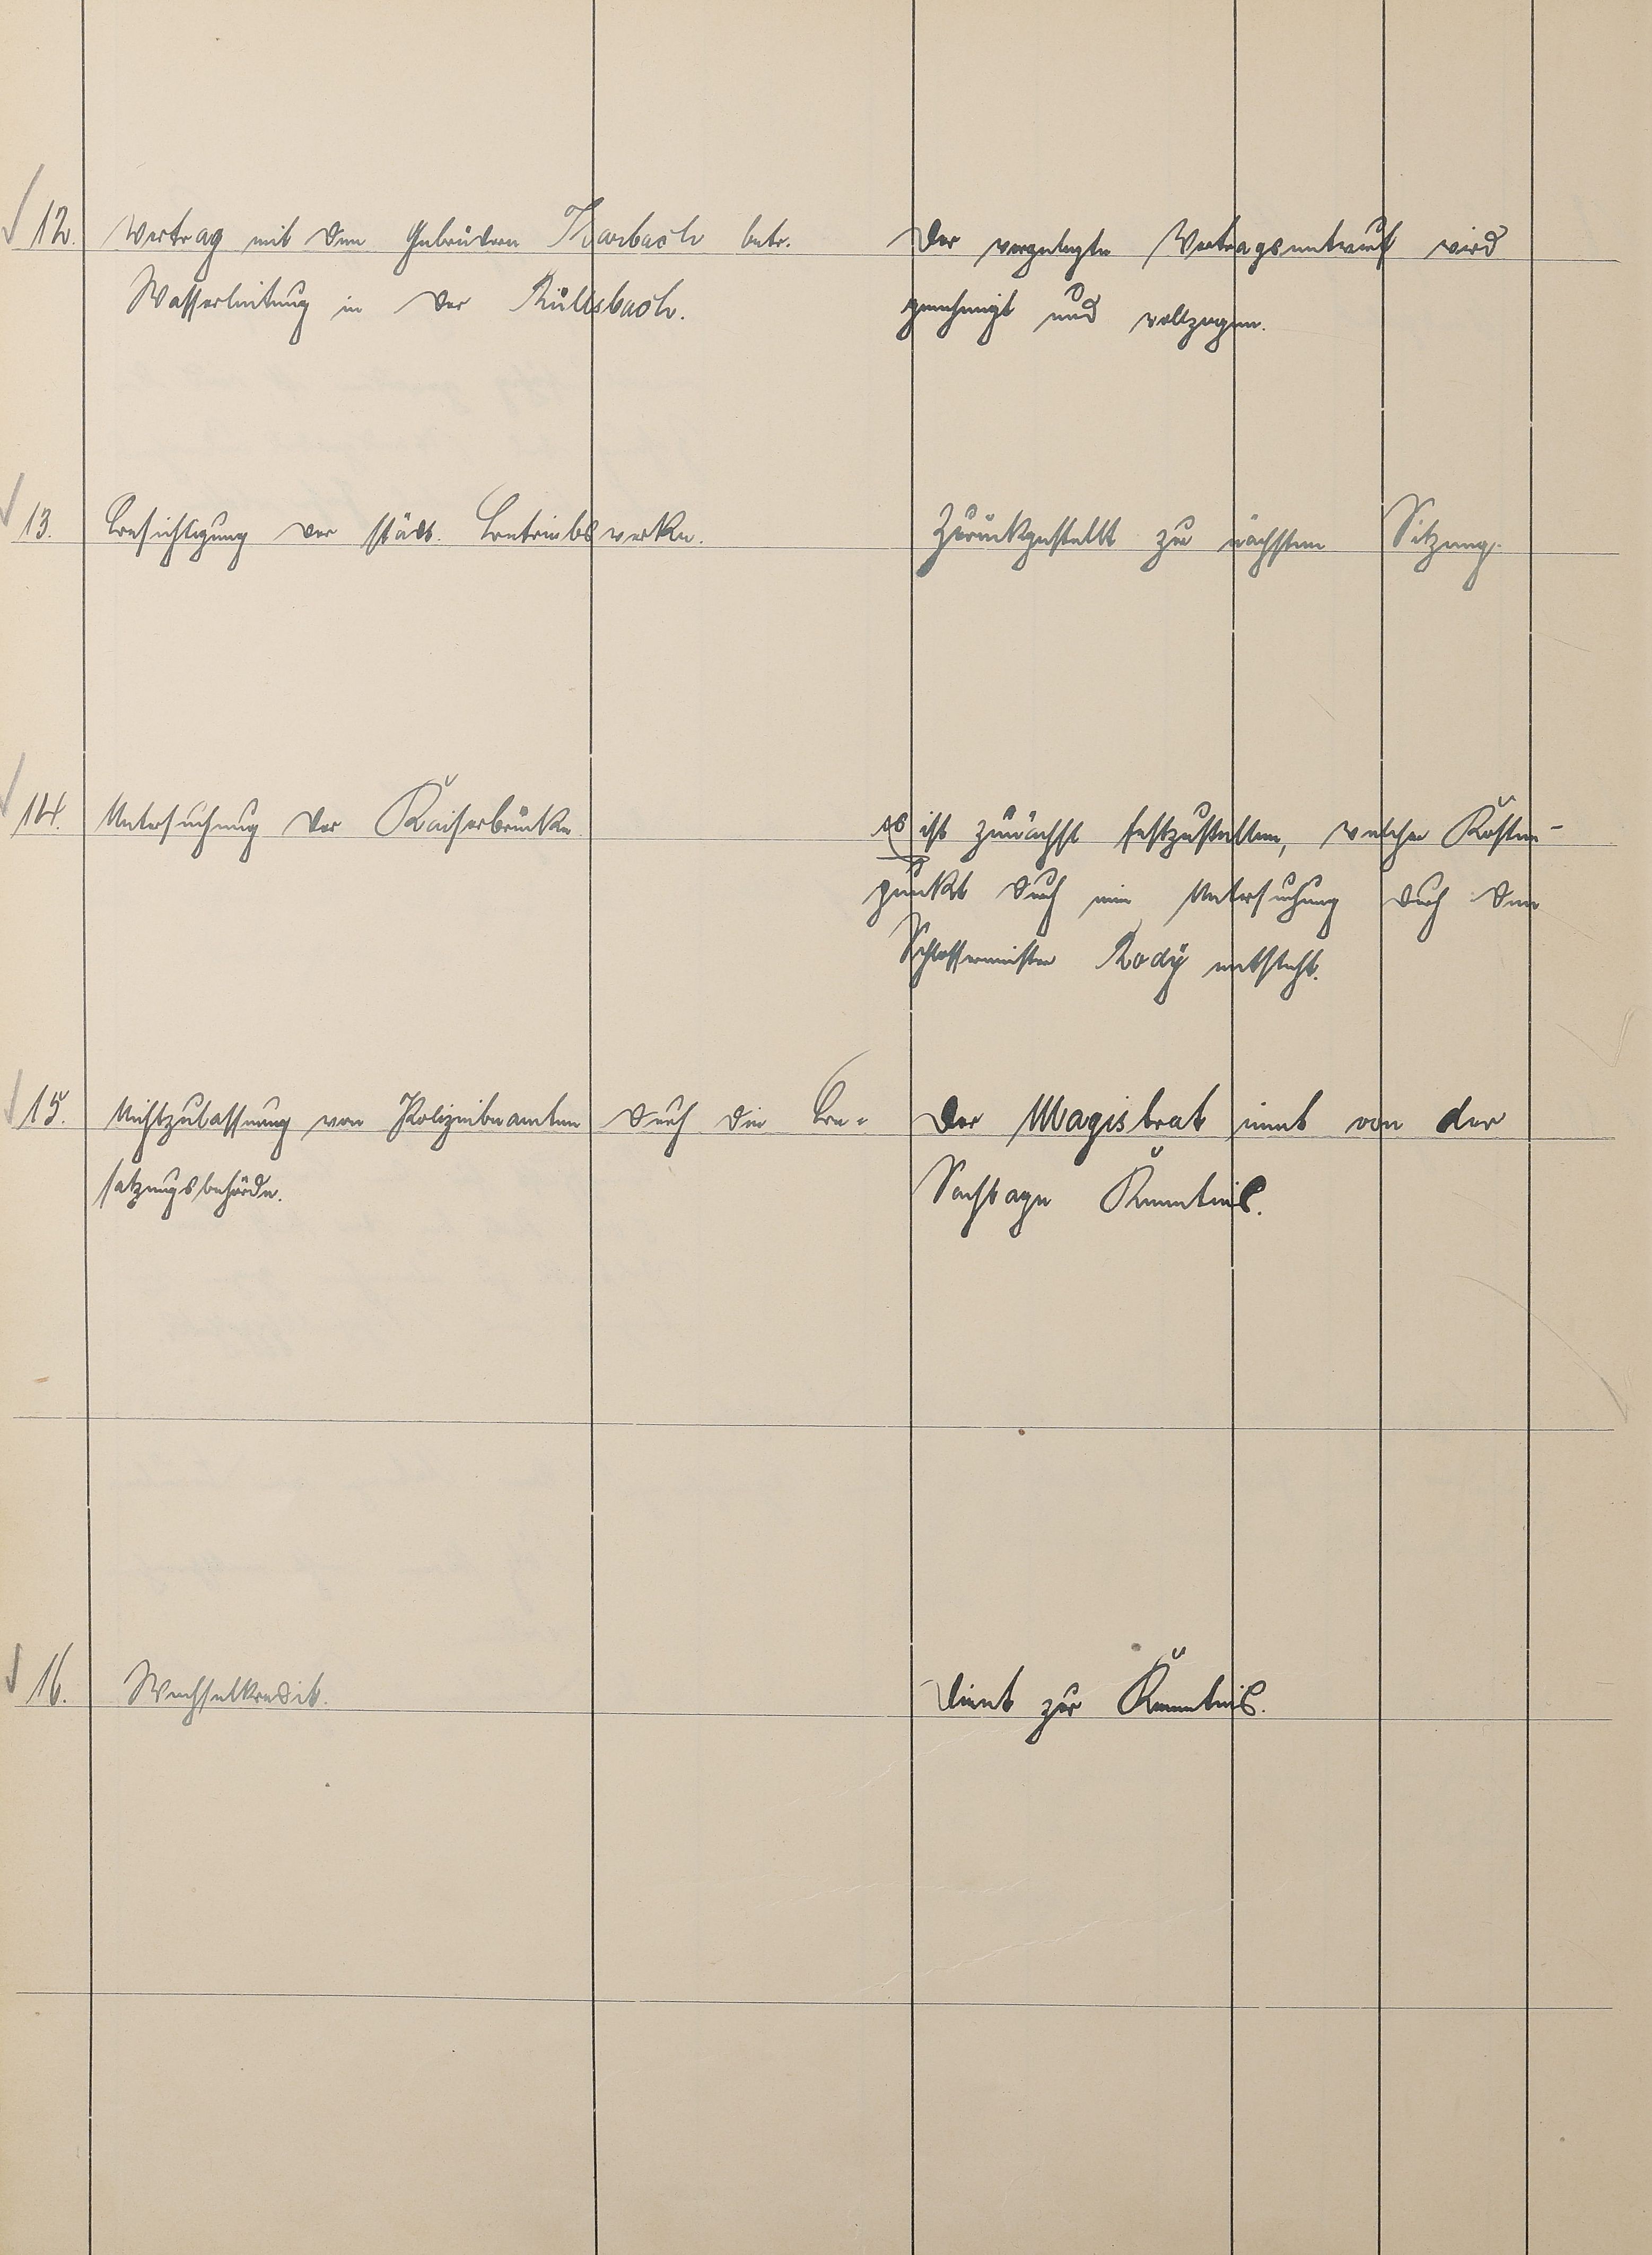 12. Vertrag mit den Gebrüdern Tharbach betr.
Wasserleitung in der Rüllsbach.
Der vorgelegte Vertragsentwurf wird
genehmigt und vollzogen.
13. Besichtigung der städt. Betriebswerke.
Zurückgestellt zur nächsten Sitzung.
14. Untersuchung der Kaiserbrücke
es ist zunächst festzustellen, welcher Kosten-
punkt durch eine Untersuchung durch den
Schlossermeister Rody entsteht.
15. Nichtzulassung von Polizeibeamten durch die Be-
satzungsbehörde.
Der Magistrat nimt von der
Sachlage Kenntnis.
16. Wechselkredit.
Dient zur Kenntnis.